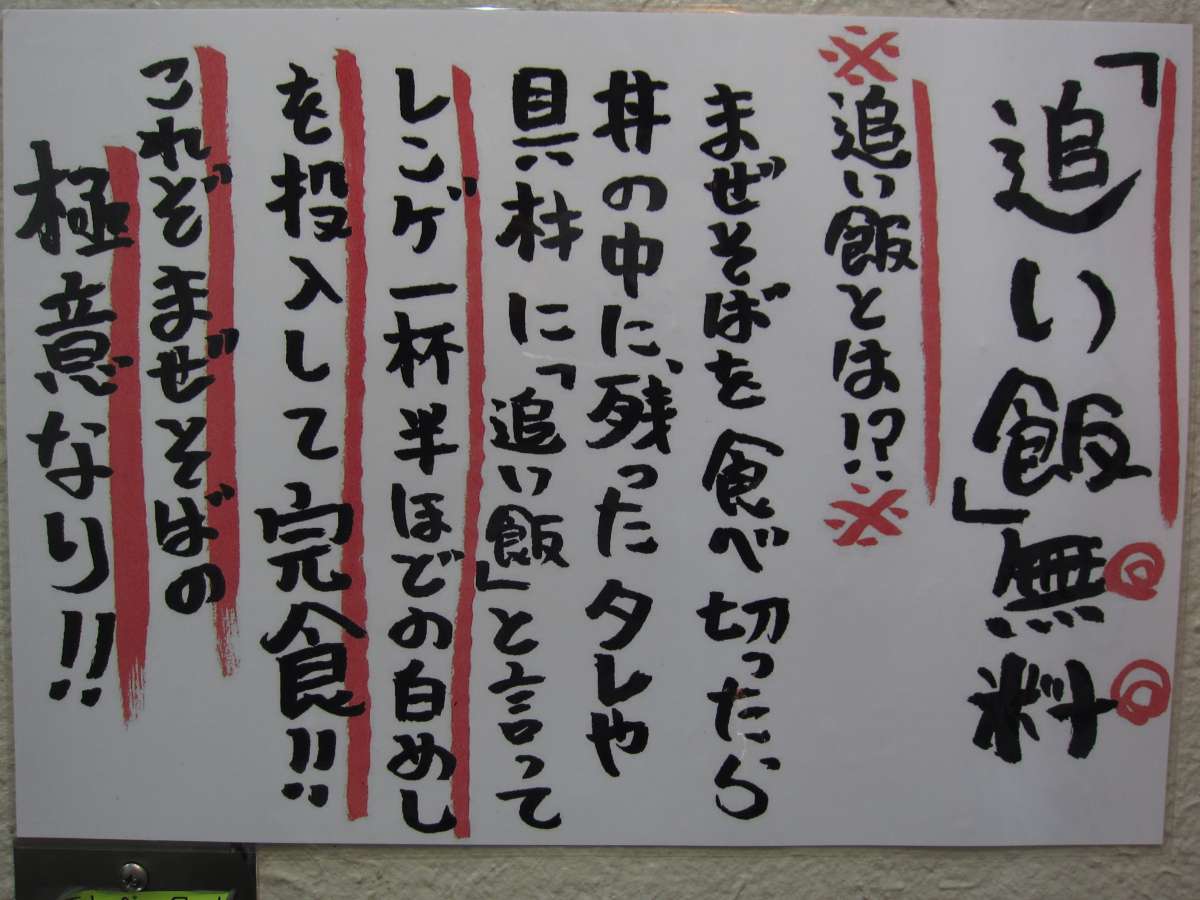 「追い飯」無料
※追い飯とは!?※
まぜそばを食べ切ったら
丼の中に、残ったタレや
具材に「追い飯」と言って
レンゲ一杯半ほどの白めし
を投入して完食!!
これぞまぜそばの
極意なり!!